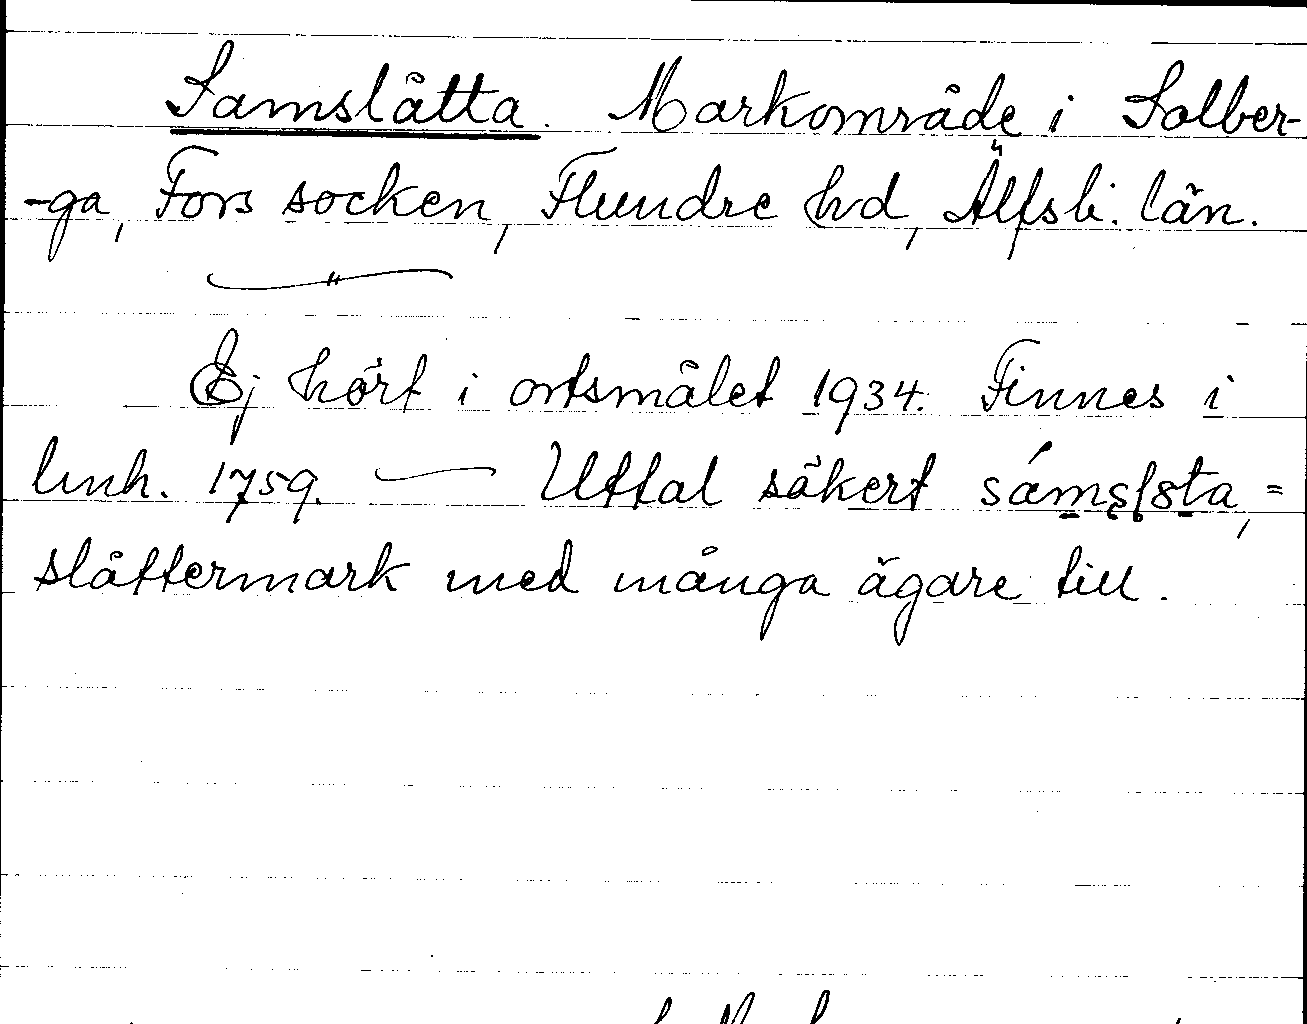 Samslåtta. Markområde i Solber-
-ga, Fors socken, Flundre hd, Älfsb. län.
Ej hört i ortsmålet 1934. Finnes i
lmh. 1759. — Uttal säkert
slåttermark med många ägare till.